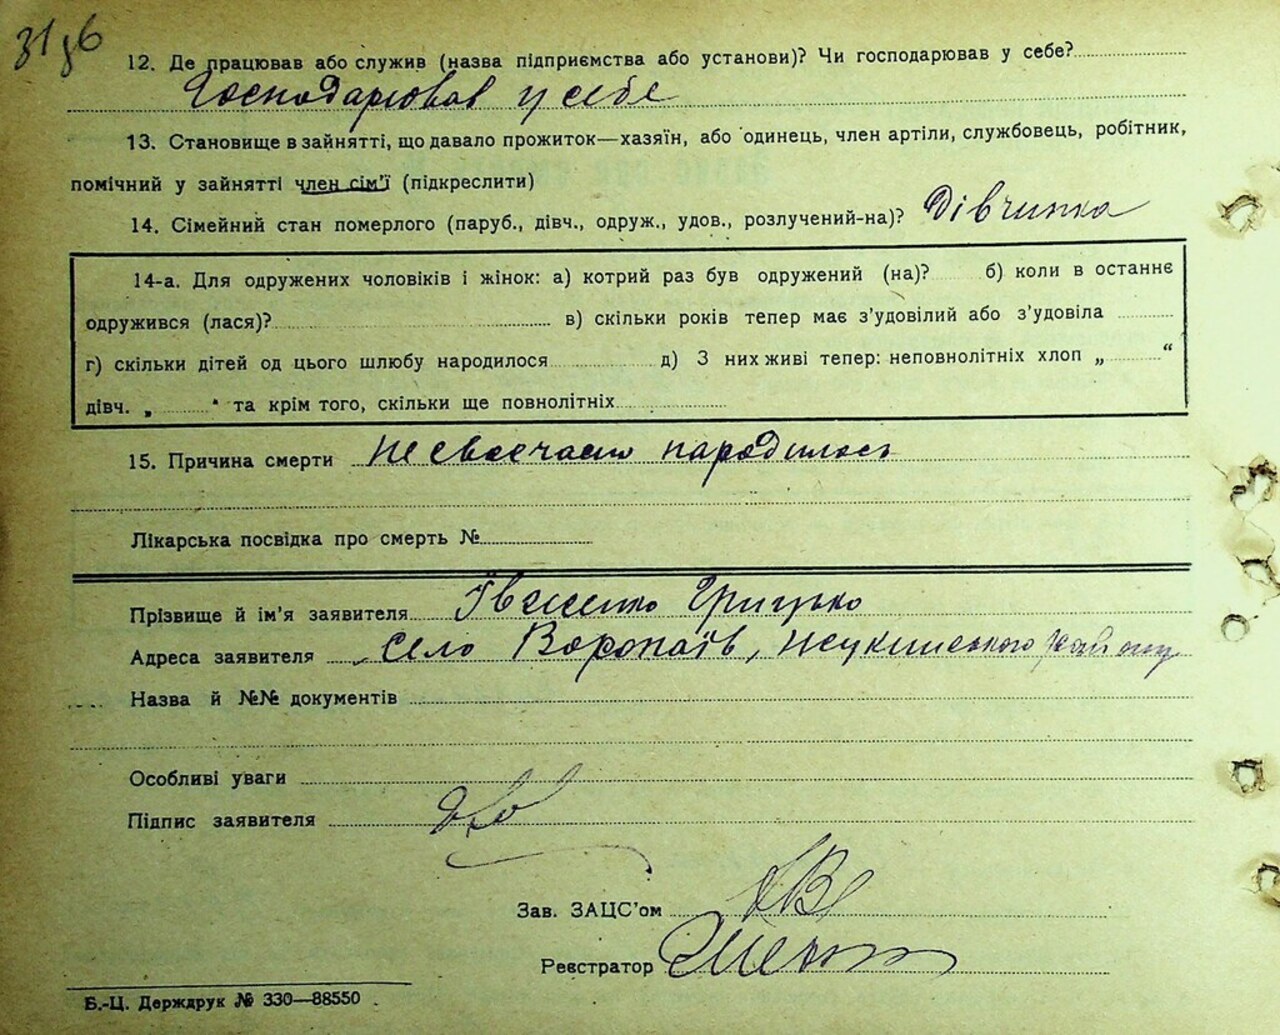 31зб
12. Де працював або служив (назва підприємства або установи)? Чи господарював у себе?
Господарював у себе
13. Становище в зайнятті, що давало прожиток—хазяїн, або одинець, член артіли, службовець, робітник,
помічний у зайнятті член сім'ї (підкреслити)
14. Сімейний стан померлого (паруб., дівч., одруж., удов., розлучений-на)? Дівчинка
14-а. Для одружених чоловіків і жінок: а) котрий раз був одружений (на)? б) коли в останнє
одружився (лася)? в) скільки років тепер має з'удовілий або з'удовіла
г) скільки дітей од цього шлюбу народилося д) З них живі тепер: неповнолітніх хлоп „ “
дівч. „ “ та крім того, скільки ще повнолітніх
15. Причина смерти Не своєчасно народилось
Лікарська посвідка про смерть №
Прізвище й ім'я заявителя Грицько
Адреса заявителя село Воропаїв,
Назва й №№ документів
Особливі уваги
Підпис заявителя
Зав. ЗАЦС'ом
Реєстратор
Б.-Ц. Держдрук № 330—88550 .